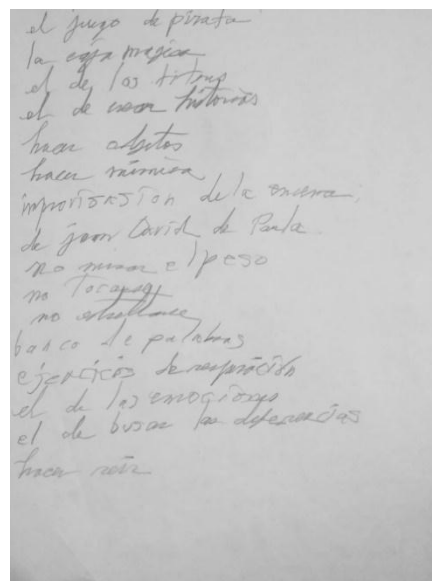 el juego de pirata
la caja magica
el de los titres
el de crear historias
hacer objetos
hacer mimica
improvisasion de la
de juan David de Paula.
no mirar el peso
no Tocarse
no estrellarse
banco de palabras
ejercicios de respiración
el de las emociones
el de buscar las diferencias
hacer reir